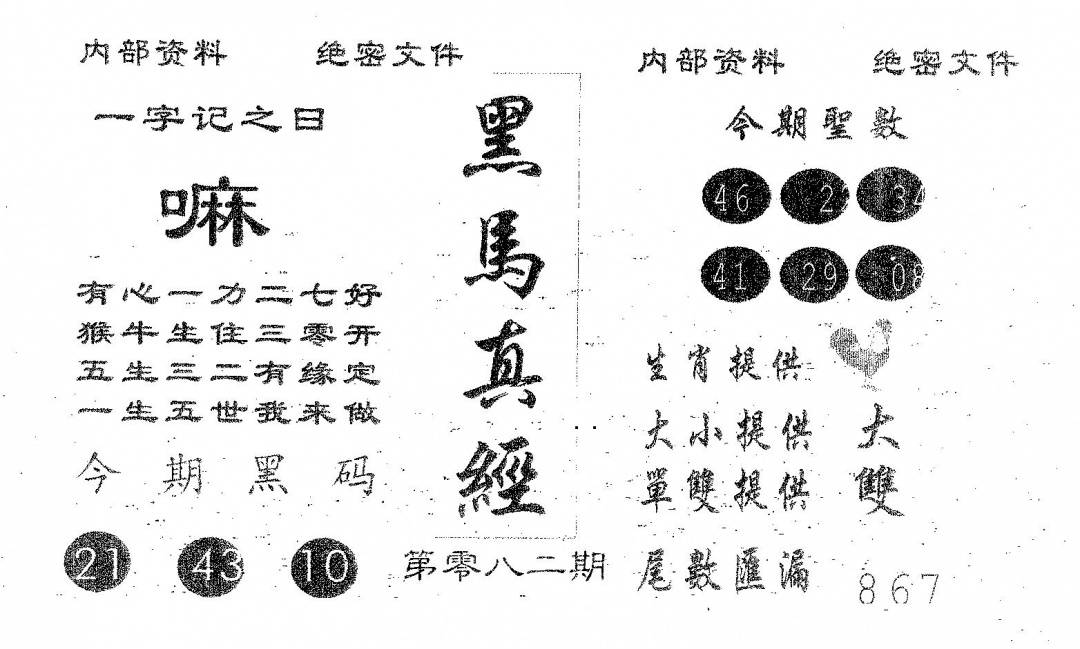 内部资料 绝密文件
一字记之曰
嘛
有心一力二七好
猴牛生住三零开
五生三二有缘定
一生五世我来做
今期黑码
21 43 10
黑馬真經
第零八二期
内部资料 绝密文件
今期聖數
46 2 34
41 29 08
生肖提供
大小提供 大
單雙提供 雙
尾數匯漏 867